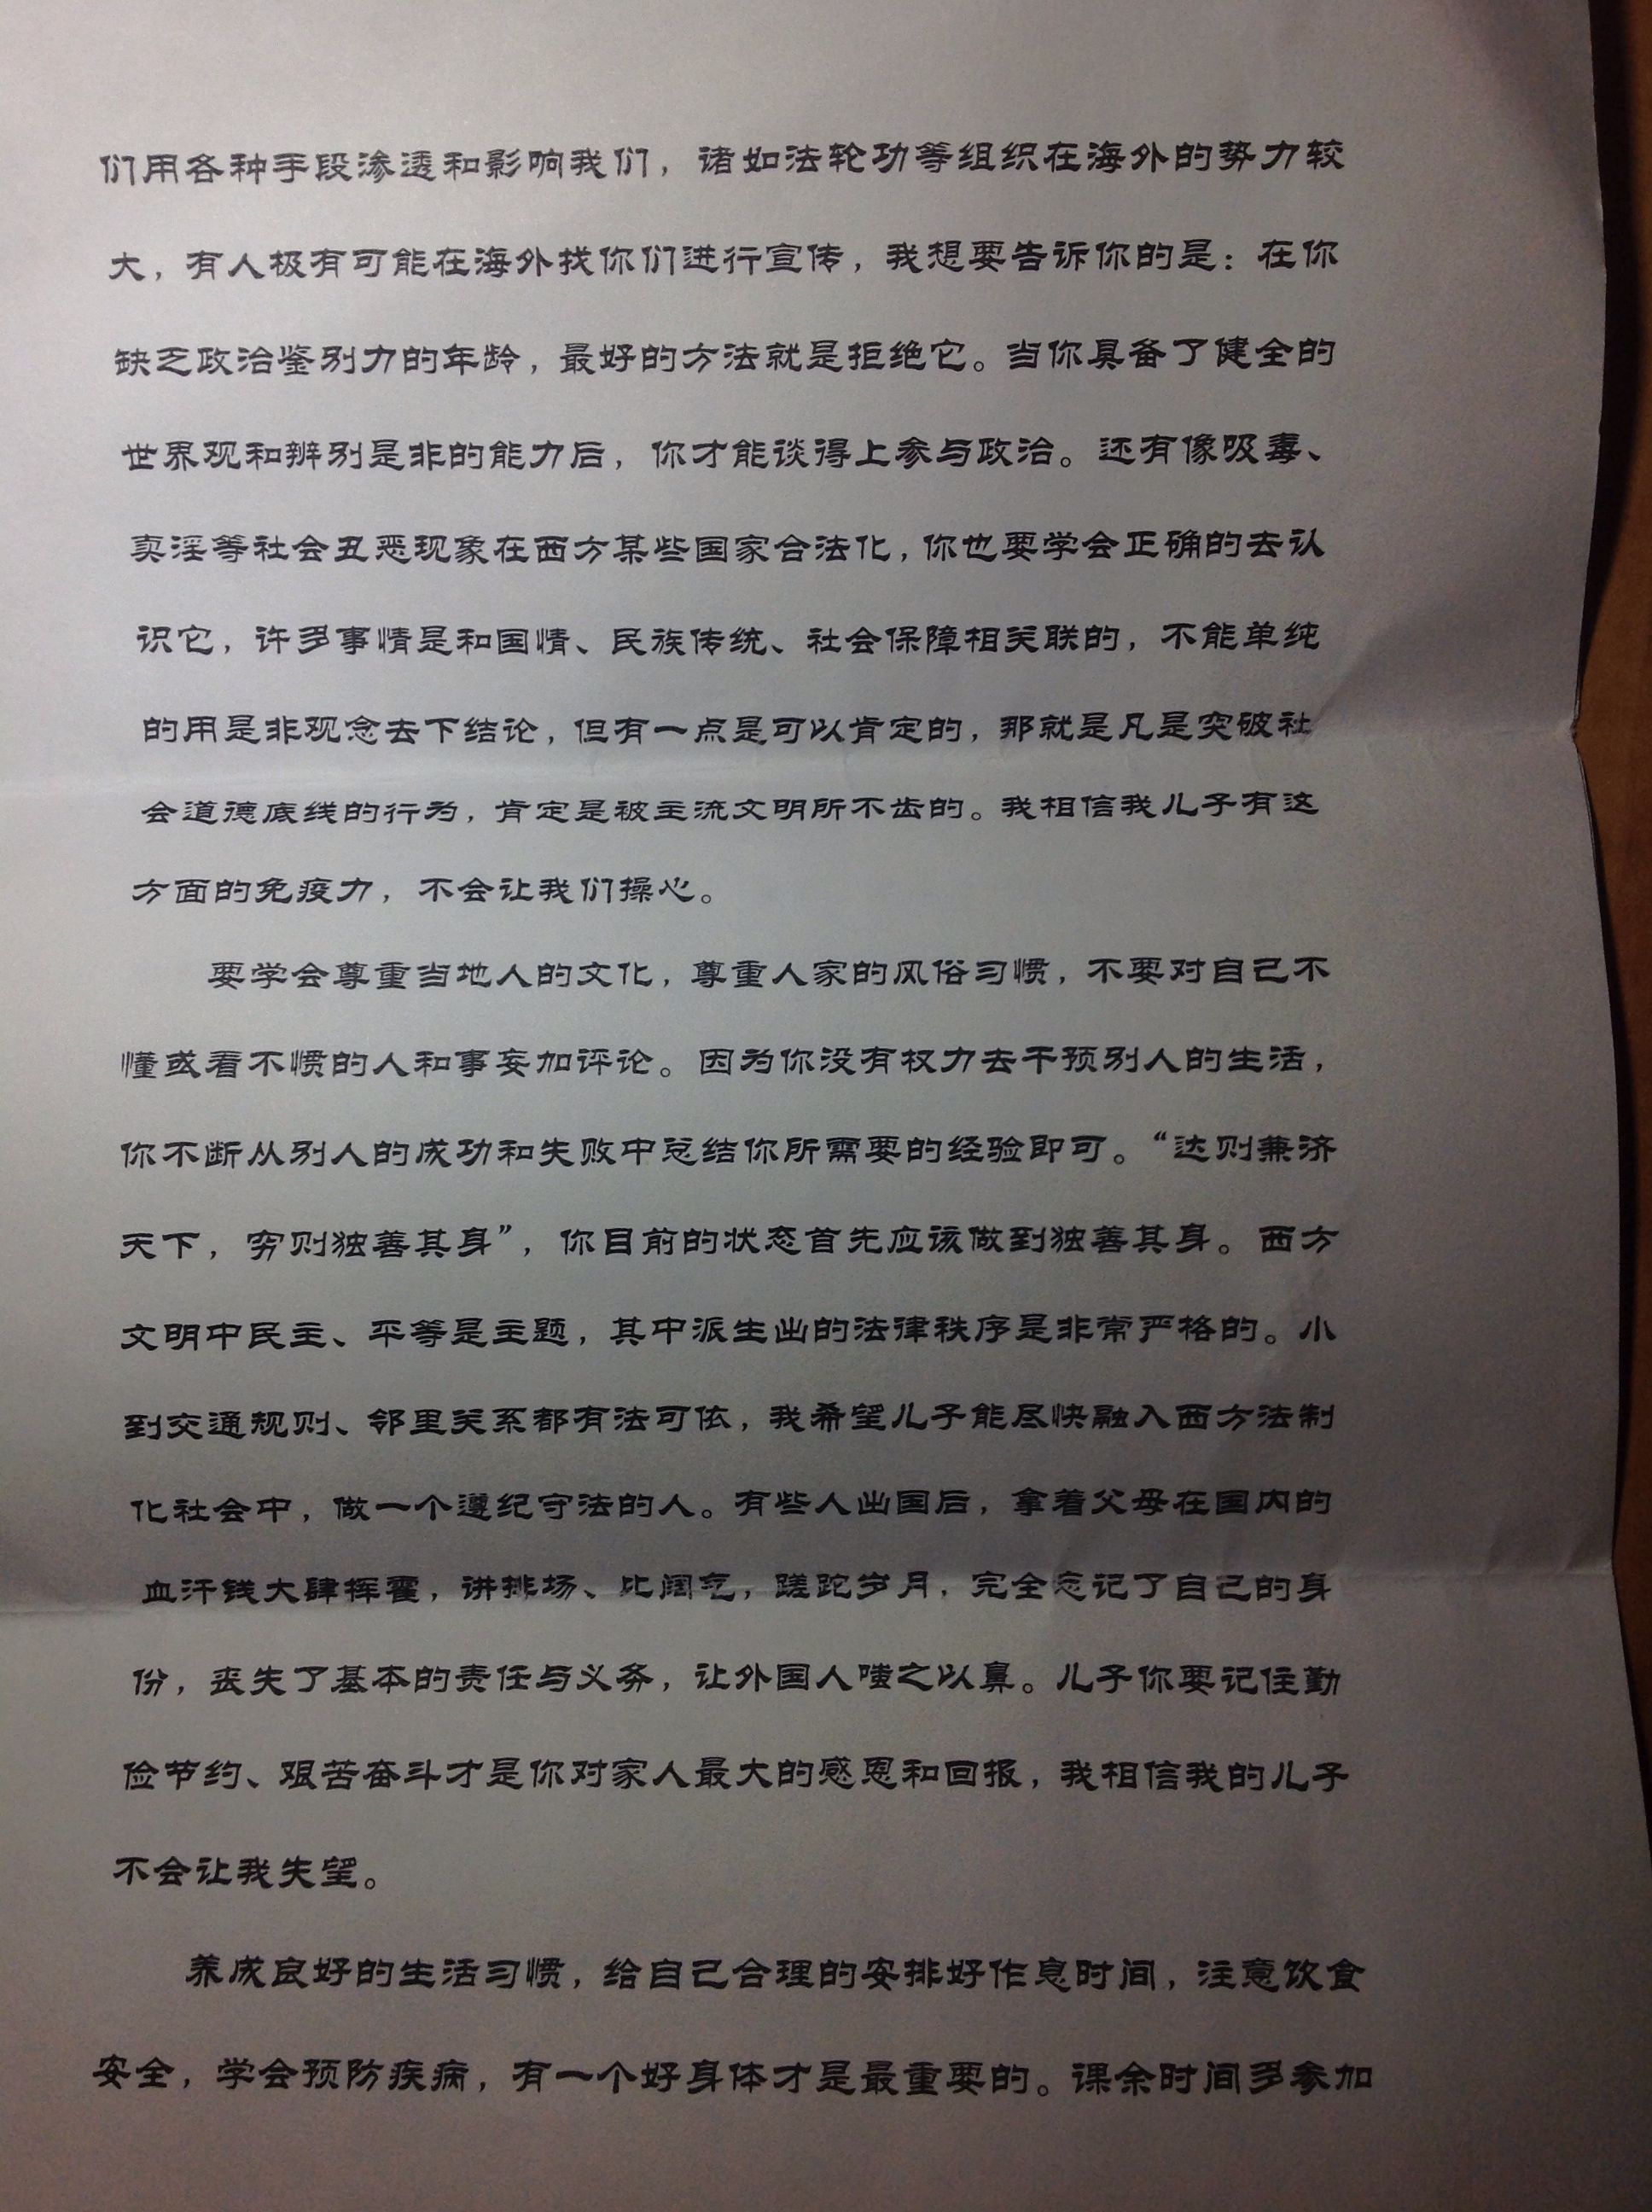 们用各种手段渗透和影响我们，诸如法轮功等组织在海外的势力较
大，有人极有可能在海外找你们进行宣传，我想要告诉你的是：在你
缺乏政治鉴别力的年龄，最好的方法就是拒绝它。当你具备了健全的
世界观和辨别是非的能力后，你才能谈得上参与政治。还有像吸毒、
卖淫等社会丑恶现象在西方某些国家合法化，你也要学会正确的去认
识它，许多事情是和国情、民族传统、社会保障相关联的，不能单纯
的用是非观念去下结论，但有一点是可以肯定的，那就是凡是突破社
会道德底线的行为，肯定是被主流文明所不齿的。我相信我儿子有这
方面的免疫力，不会让我们操心。
要学会尊重当地人的文化，尊重人家的风俗习惯，不要对自己不
懂或看不惯的人和事妄加评论。因为你没有权力去干预别人的生活，
你不断从别人的成功和失败中总结你所需要的经验即可。“达则兼济
天下，穷则独善其身”，你目前的状态首先应该做到独善其身。西方
文明中民主、平等是主题，其中派生出的法律秩序是非常严格的。小
到交通规则、邻里关系都有法可依，我希望儿子能尽快融入西方法制
化社会中，做一个遵纪守法的人。有些人出国后，拿着父母在国内的
血汗钱大肆挥霍，讲排场、比阔气，蹉跎岁月，完全忘记了自己的身
份，丧失了基本的责任与义务，让外国人嗤之以鼻。儿子你要记住勤
俭节约、艰苦奋斗才是你对家人最大的感恩和回报，我相信我的儿子
不会让我失望。
养成良好的生活习惯，给自己合理的安排好作息时间，注意饮食
安全，学会预防疾病，有一个好身体才是最重要的。课余时间多参加